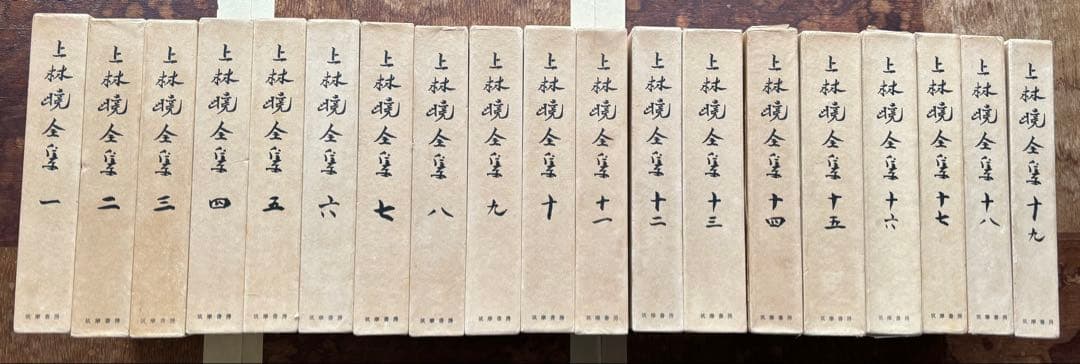 上林曉全集 一
筑摩書房
上林曉全集 二
筑摩書房
上林曉全集 三
筑摩書房
上林曉全集 四
筑摩書房
上林曉全集 五
筑摩書房
上林曉全集 六
筑摩書房
上林曉全集 七
筑摩書房
上林曉全集 八
筑摩書房
上林曉全集 九
筑摩書房
上林曉全集 十
筑摩書房
上林曉全集 十一
筑摩書房
上林曉全集 十二
筑摩書房
上林曉全集 十三
筑摩書房
上林曉全集 十四
筑摩書房
上林曉全集 十五
筑摩書房
上林曉全集 十六
筑摩書房
上林曉全集 十七
筑摩書房
上林曉全集 十八
筑摩書房
上林曉全集 十九
筑摩書房